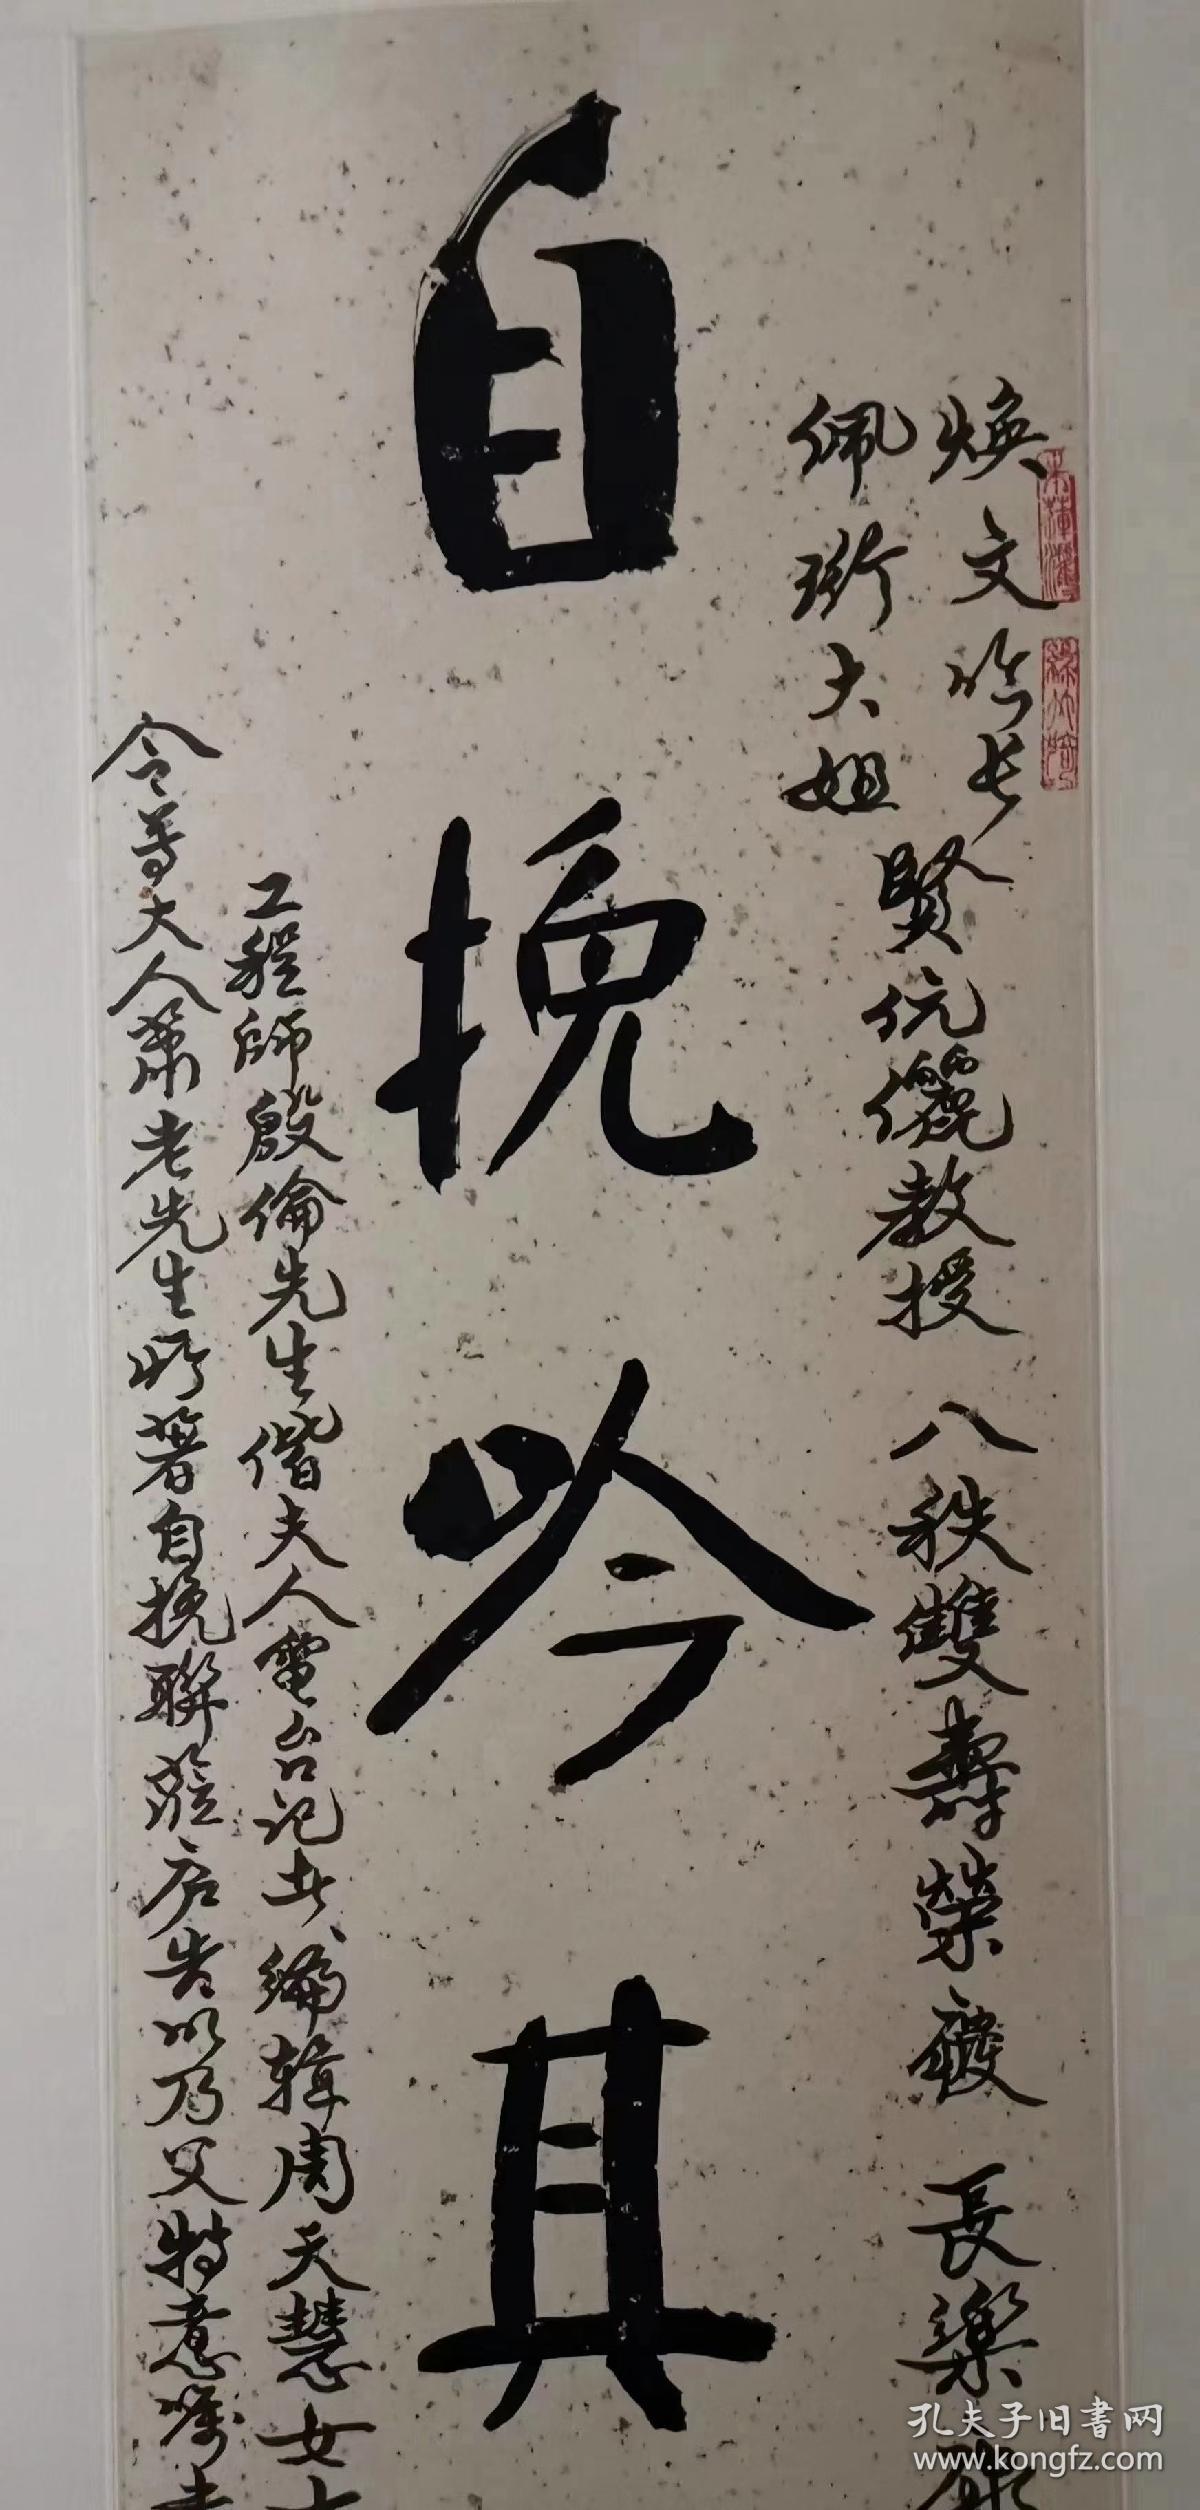 煥文詒長
佩珩大姐
賢伉儷教授 八秩雙壽榮慶 長樂
自挽吟其
工程師殷倫先生偕夫人電台記者編輯周天慧女士
令尊大人蕭老先生所著自挽聯
告以乃父特意囑
孔夫子旧書网
www.kongfz.com